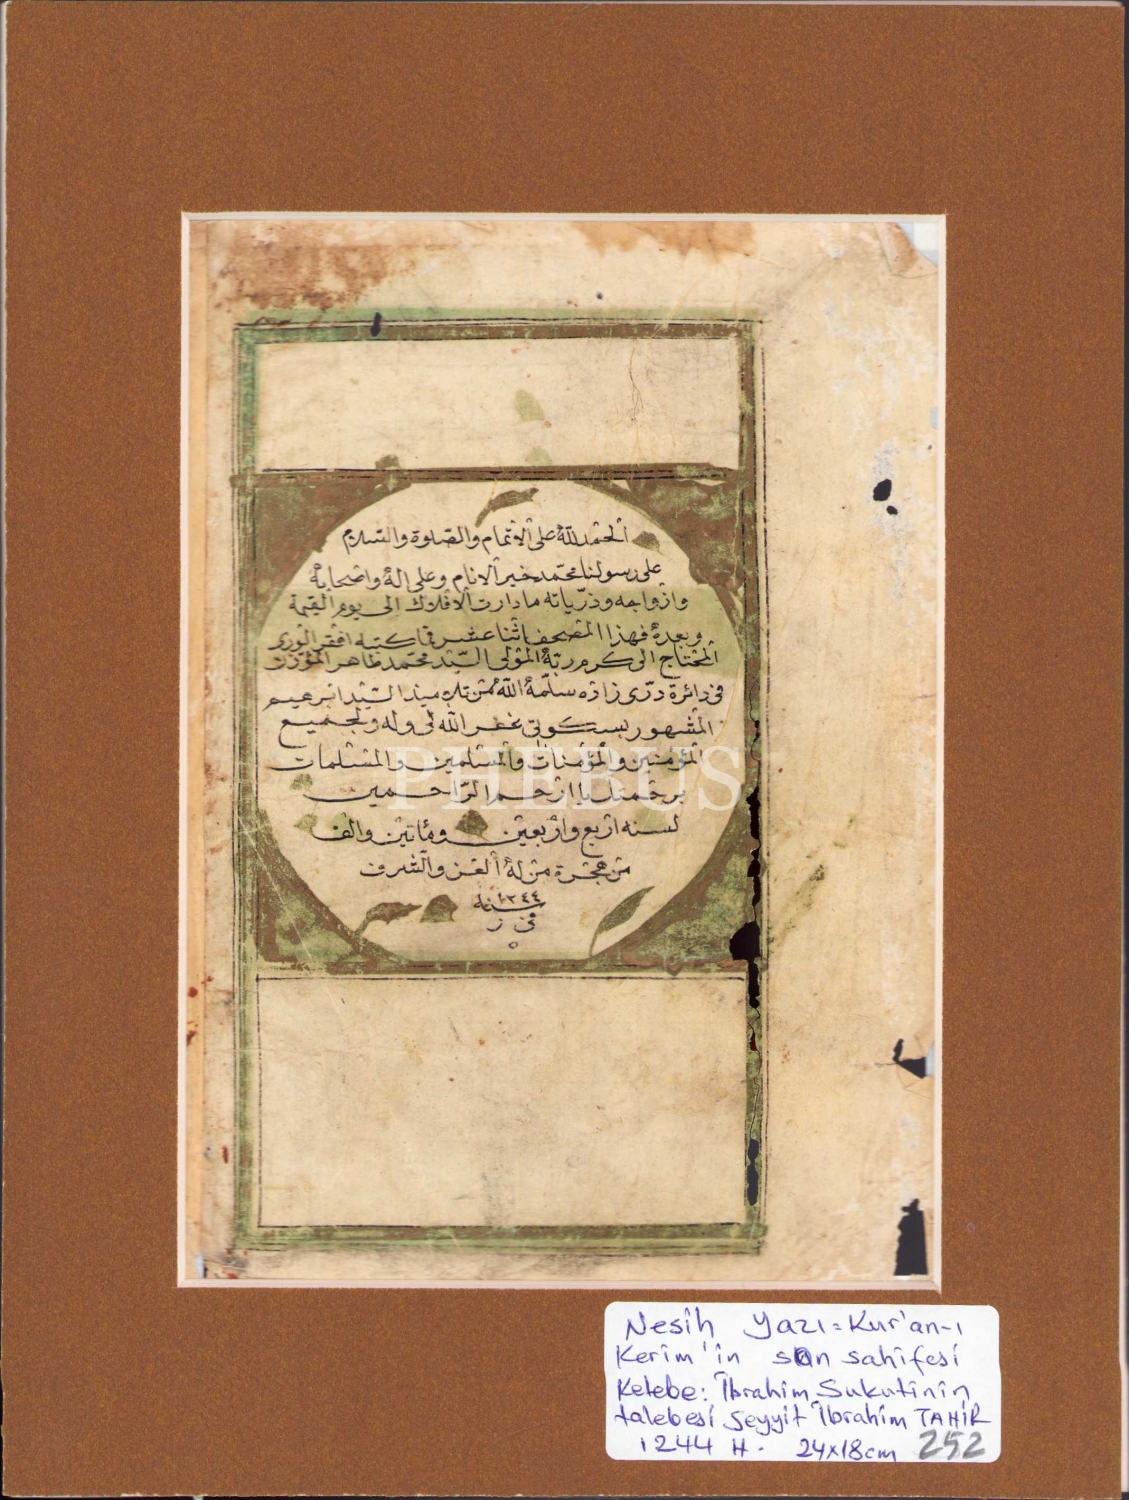 الحمد لله على الاتمام والصلوة والسلام
على رسولنا محمد خير الانام وعلى اله واصحابه
وازواجه وذرياته ما دارت الافلاك الى يوم القيمة
وبعده فهذا المصحف اثنا عشر مما كتبه افقر الورى
المحتاج الى كرم ربه المولى السيد محمد طاهر المؤذن
في دائرة درى زاده سلمه الله من تلاميذ السيد ابرهيم
المشهور بسكوتى غفر الله لى وله ولجميع
المؤمنين والمؤمنات والمسلمين والمسلمات
برحمتك يا ارحم الراحمين
لسنه اربع واربعين ومأتين والف
من هجرة من له العز والشرف
سنه ١٢٤٤
فى ز
PHEBUS
Nesih Yazı = Kur'an-ı
Kerim'in son sahifesi
Ketebe: İbrahim Sukutinin
talebesi Seyyit İbrahim TAHİR
1244 H. 24x18cm 252